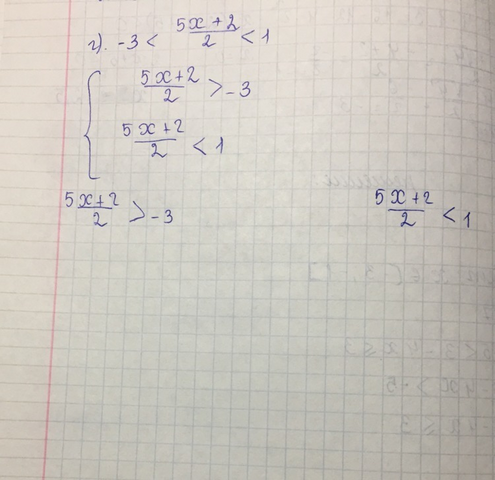 г). -3 < (5x+2)/2 < 1
{ (5x+2)/2 > -3
(5x+2)/2 < 1
(5x+2)/2 > -3 (5x+2)/2 < 1